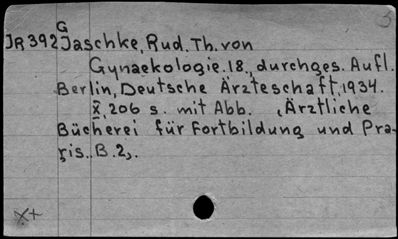 G
JR392 Jaschke, Rud. Th. von
Gynaekologie. 18., durchges. Aufl.
Berlin, Deutsche Ärzteschaft, 1934.
X, 206 s. mit Abb. (Ärztliche
Bücherei für Fortbildung und Pra-
xis.. B. 2,.
X+